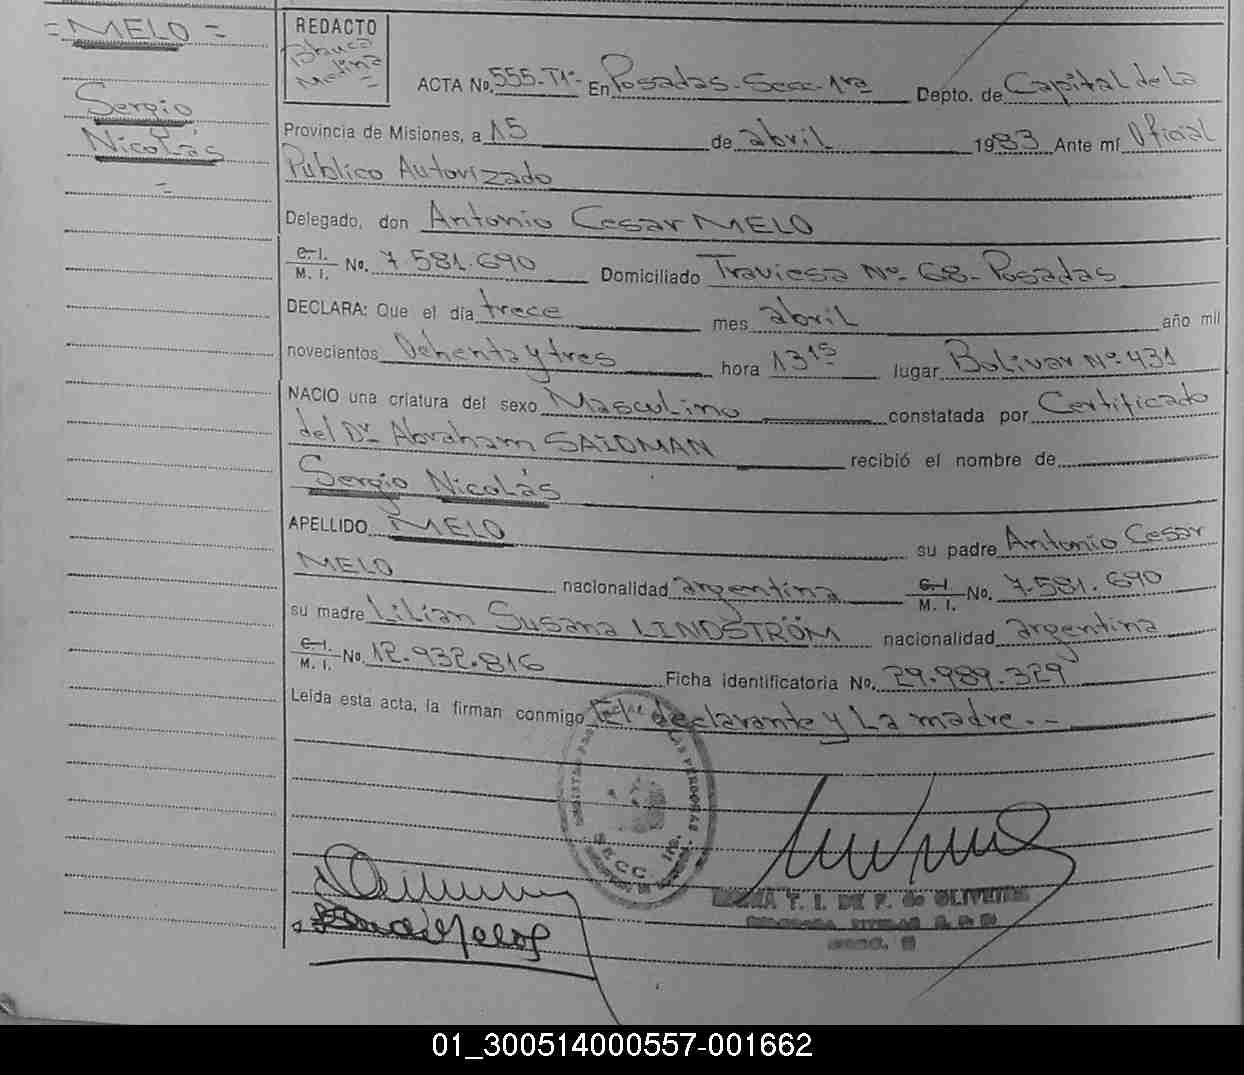 = MELO =
Sergio
Nicolás
=
REDACTO
Medina
=
ACTA No. 555-T1º- En Posadas-Secc-1ra Depto. de Capital de La
Provincia de Misiones, a 15 de abril 1983 Ante mí Oficial
Público Autorizado
Delegado, don Antonio Cesar MELO
C. I.
M. I. No. 7.581.690 Domiciliado Traviesa Nº 68-Posadas
DECLARA: Que el día trece mes abril año mil
novecientos Ochenta y tres hora 13 15 lugar Bolivar Nº 431
NACIO una criatura del sexo Masculino constatada por Certificado
del Dr Abraham SAIDMAN recibió el nombre de
Sergio Nicolás
APELLIDO MELO su padre Antonio Cesar
MELO nacionalidad argentina C. I.
M. I. No. 7.581.690
su madre Lilian Susana LINDSTRÖM nacionalidad argentina
C. I.
M. I. No. 12.932.816 Ficha identificatoria No. 29.989.329
Leída esta acta, la firman conmigo El declarante y La madre.--
SECC. 1ra.
T. I. DE F. de OLIVEIRA
01_300514000557-001662